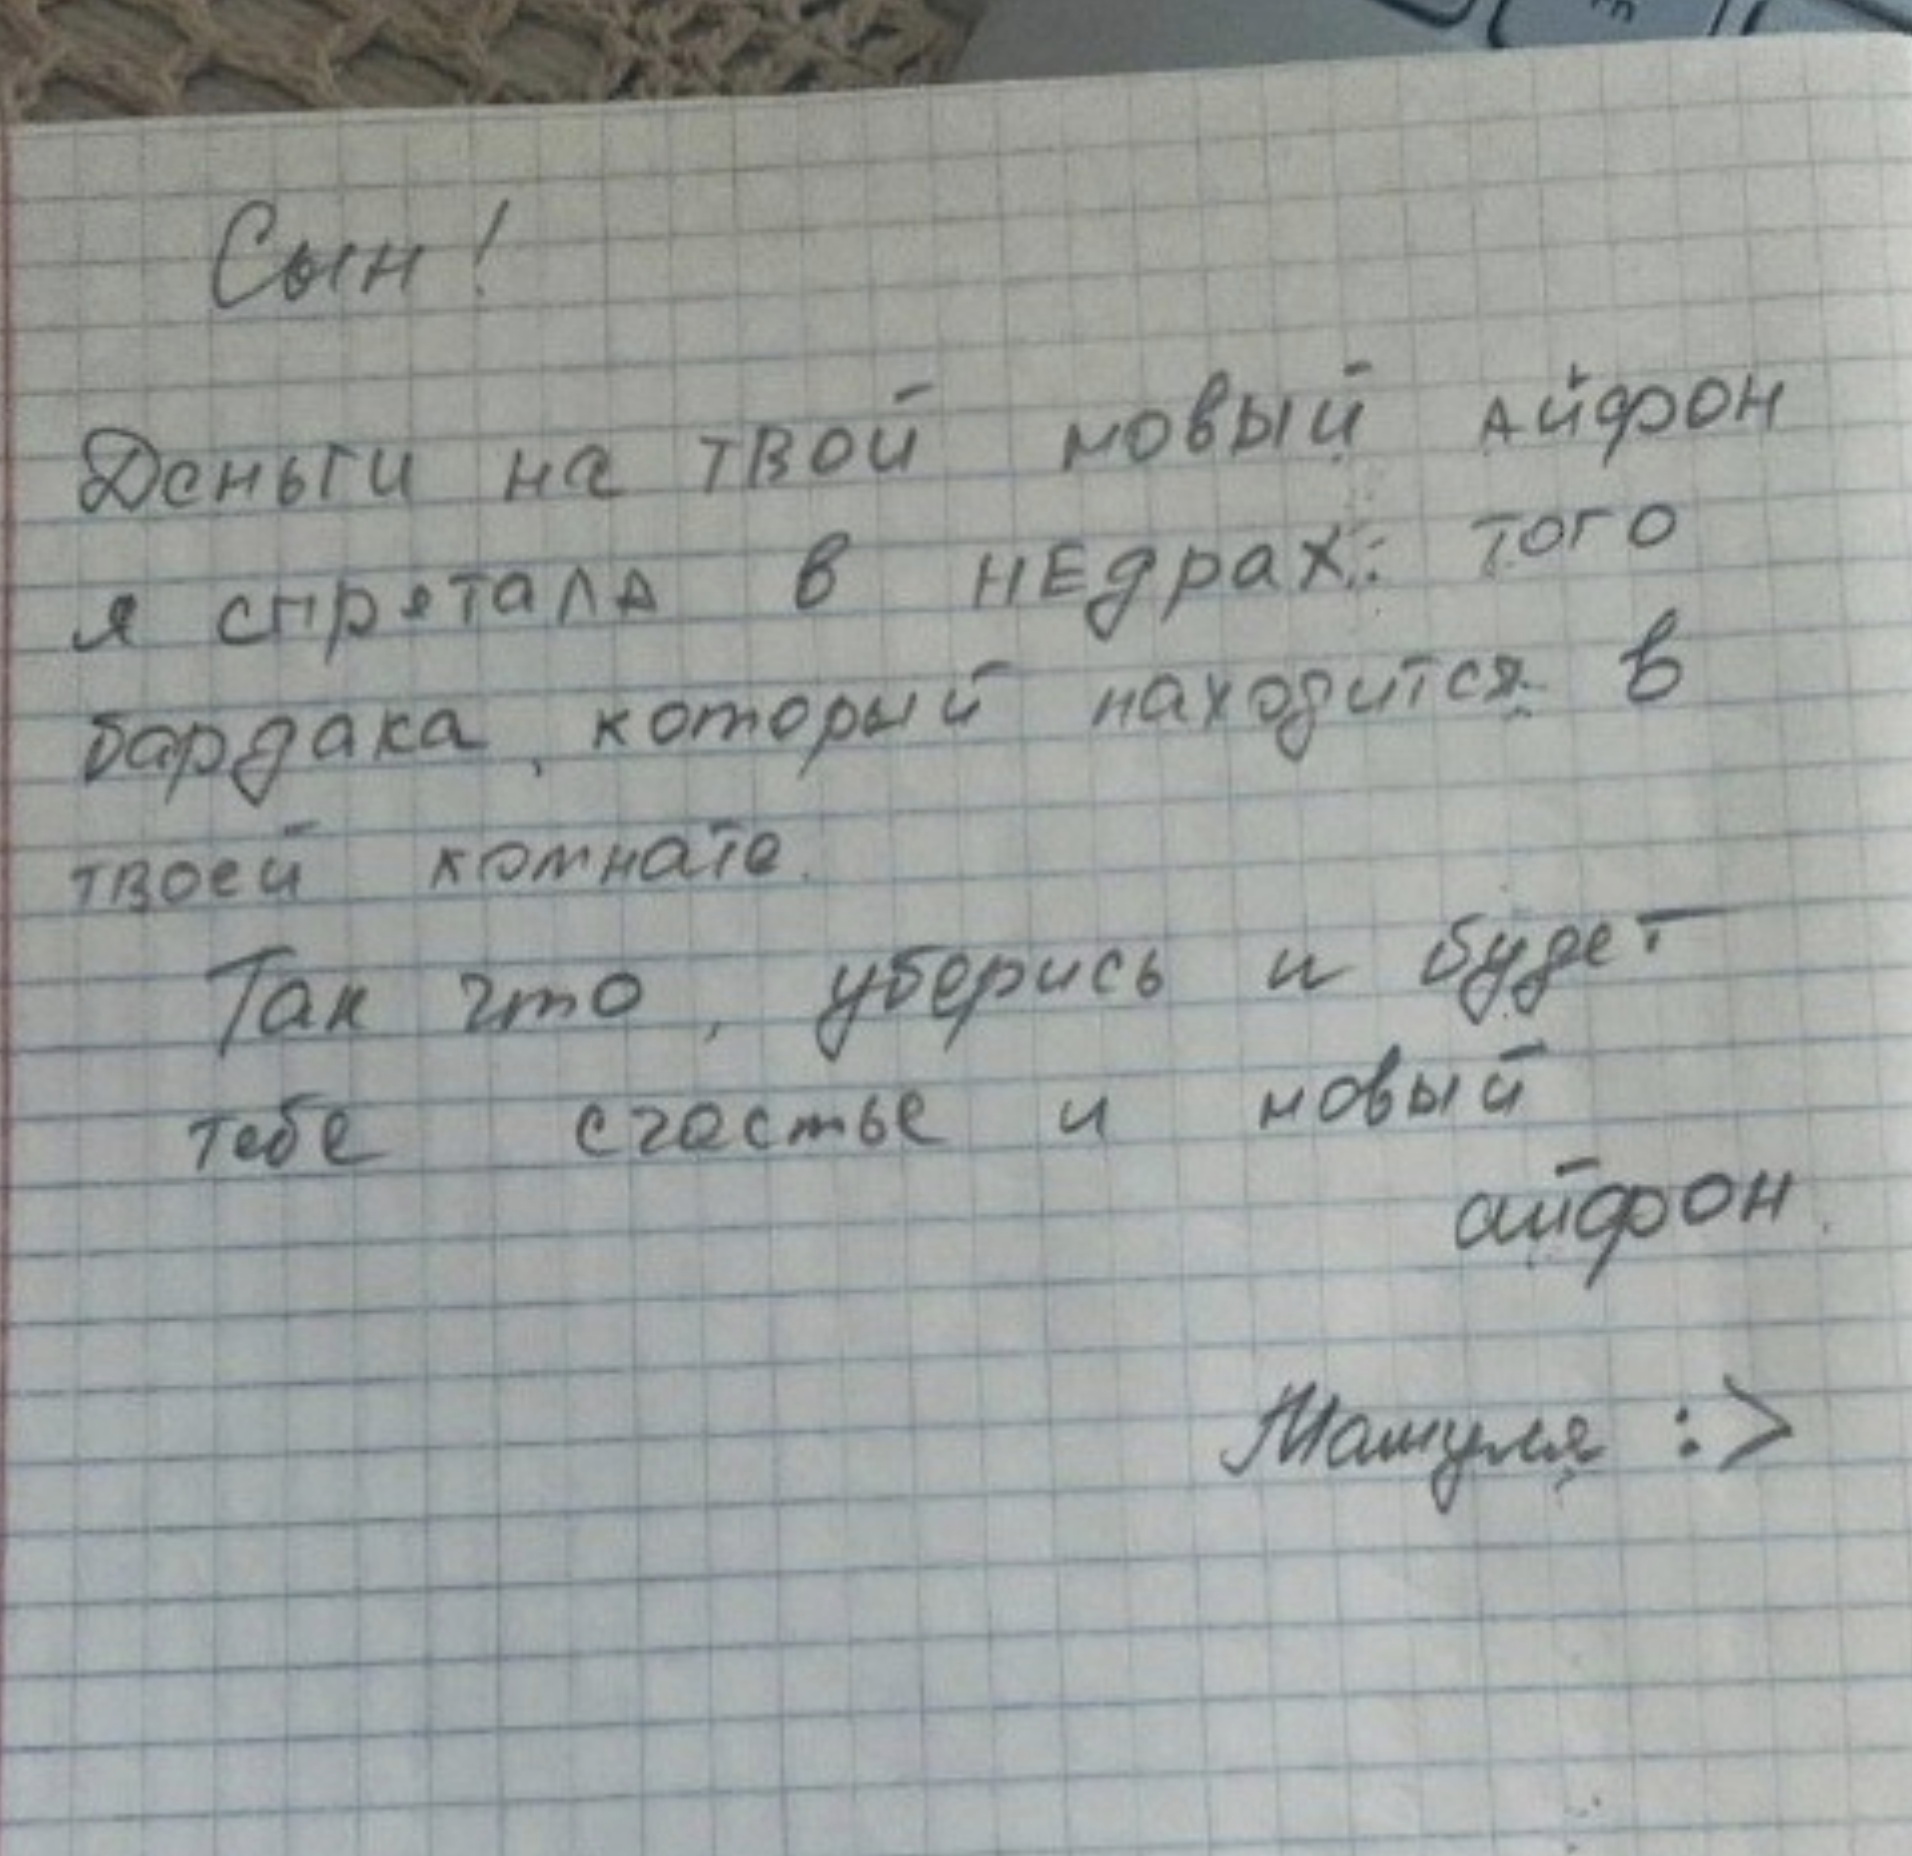 Сын!
Деньги на твой новый айфон
я спрятала в нЕдрах того
бардака, который находится в
твоей комнате.
Так что, уберись и будет
тебе счастье и новый
айфон.
Мамуля :>